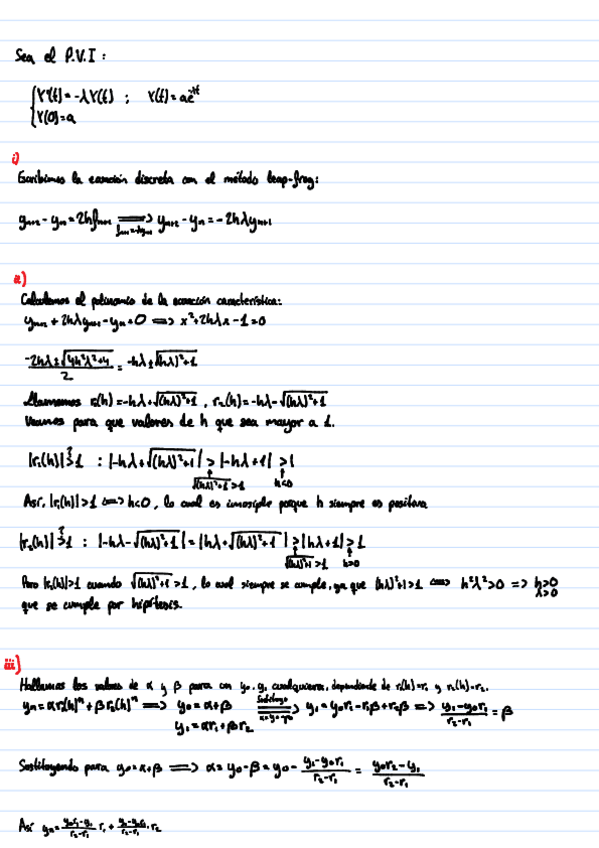 Sea el P.V.I:
{ Y'(t) = -λY(t) ; Y(t) = ae^-λt
Y(0) = a
i)
Escribimos la ecuación discreta con el método leap-frog:
y_{n+2} - y_n = 2hf_{n+1} ⟹ y_{n+2} - y_n = -2hλy_{n+1}
f_{n+1} = -λy_{n+1}
ii)
Calculamos el polinomio de la ecuación característica:
y_{n+2} + 2hλy_{n+1} - y_n = 0 ⟺ x² + 2hλx - 1 = 0
(-2hλ ± √(4h²λ² + 4))/2 = -hλ ± √((hλ)² + 1)
Llamemos r₁(h) = -hλ + √((hλ)² + 1) , r₂(h) = -hλ - √((hλ)² + 1)
Veamos para que valores de h que sea mayor a 1.
|r₁(h)| >? 1 : |-hλ + √((hλ)² + 1)| > |-hλ + 1| > 1
√((hλ)² + 1) > 1 h<0
Así, |r₁(h)| > 1 ⟺ h<0, lo cual es imposible porque h siempre es positiva
|r₂(h)| >? 1 : |-hλ - √((hλ)² + 1)| = |hλ + √((hλ)² + 1)| > |hλ + 1| > 1
√((hλ)² + 1) > 1 h>0
Pero |r₂(h)| > 1 cuando √((hλ)² + 1) > 1, lo cual siempre se cumple, ya que (hλ)² + 1 > 1 ⟺ h²λ² > 0 ⟹ h>0
λ>0
que se cumple por hipótesis.
iii)
Hallamos los valores de α y β para con y₀, y₁ cualquiera, dependiendo de r₁(h) = r₁ y r₂(h) = r₂.
y_n = αr₁(h)^n + βr₂(h)^n ⟹ y₀ = α + β ⟹ y₁ = y₀r₁ - r₁β + r₂β ⟹ (y₁ - y₀r₁)/(r₂ - r₁) = β
y₁ = αr₁ + βr₂
Sustituyendo para y₀ = α + β ⟹ α = y₀ - β = y₀ - (y₁ - y₀r₁)/(r₂ - r₁) = (y₀r₂ - y₁)/(r₂ - r₁)
Así y_n = (y₀r₂ - y₁)/(r₂ - r₁) r₁ + (y₁ - y₀r₁)/(r₂ - r₁) · r₂